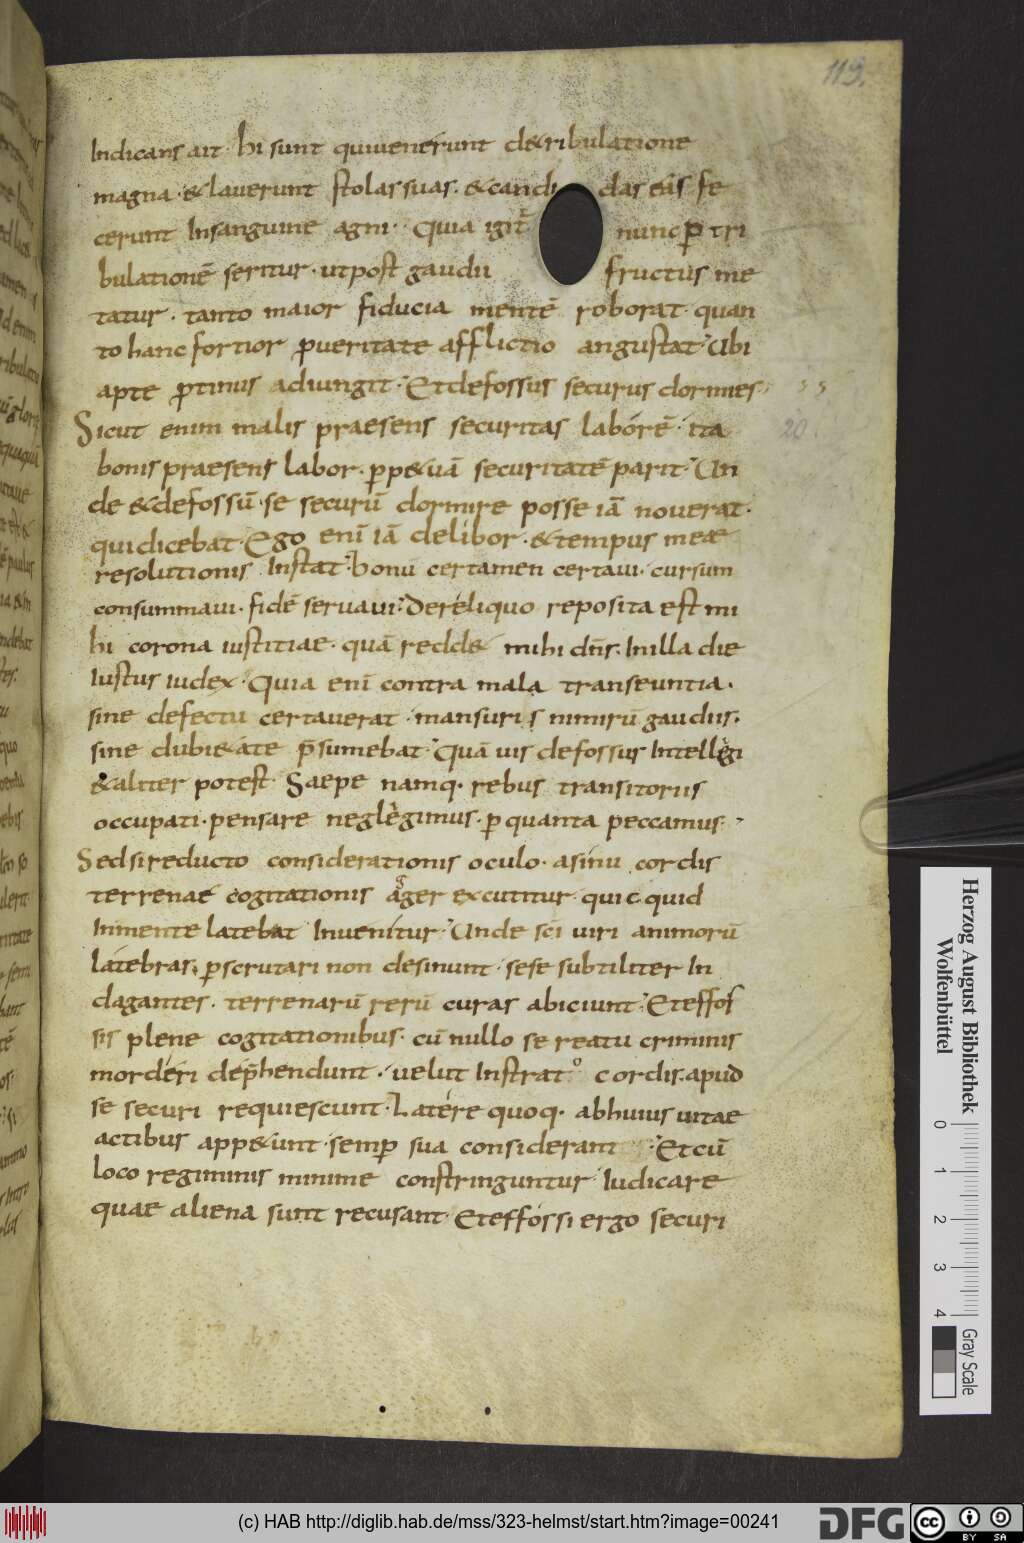 119.
Indicans ait· hi sunt quiuenerunt de&ribulatione
magna·&lauerunt stolas suas·&candi das eas fe
cerunt Insanguine agni·· Quia igit̄ nunc ꝑ tri
bulationē seritur·utpost gaudii fructus me
tatur· tanto maior fiducia mentē roborat· quan
to hanc fortior ꝓueritate afflictio angustat·Ubi
apte ꝓtinus adiungit·Etdefossus securus dormies·
20.
Sicut enim malis praesens securitas laborē· ita
bonis praesens labor·ꝑp&uā securitatē parit·Un
de &defossū·se securū dormire posse iā nouerat·
quidicebat·Ego enī iā delibor·&tempus meae
resolutionis Instat·bonū certamen certaui·cursum
consummaui·fidē seruaui·Dereliquo reposita est mi
hi corona iustitiae·quā redd& mihi dn̄s·Inilla die
Iustus iudex·Quia enī contra mala transeuntia·
sine defectu certauerat·mansuris nimirū gaudiis·
sine dubi&ate p̄sumebat·Quāuis defossus Intellegi
&aliter potest· Saepe namq· rebus transitoriis
occupati·pensare neglegimus·ꝑquanta peccamus·
Sedsireducto considerationis oculo·asinu cordis
terrenae cogitationis ager excutitur·quicquid
Inmente latebat Inuenitur·Unde sc̄i uiri animorū
latebras ꝑscrutari non desinunt·sese subtiliter In
dagantes· terrenarū rerū curas abiciunt·Eteffos
sis plene cogitationibus·cū nullo se reatu criminis
morderi dep̄hendunt·uelut Instrato cordis·apud
se securi requiescunt·Latere quoq· abhuius uitae
actibus app&unt·semꝑ sua considerant ·Etcū
loco regiminis minime constringuntur Iudicare
quae aliena sunt recusant·Eteffossi ergo securi
Herzog August Bibliothek
Wolfenbüttel
0 1 2 3 4
Gray Scale
(c) HAB http://diglib.hab.de/mss/323-helmst/start.htm?image=00241
DFG
cc
BY SA